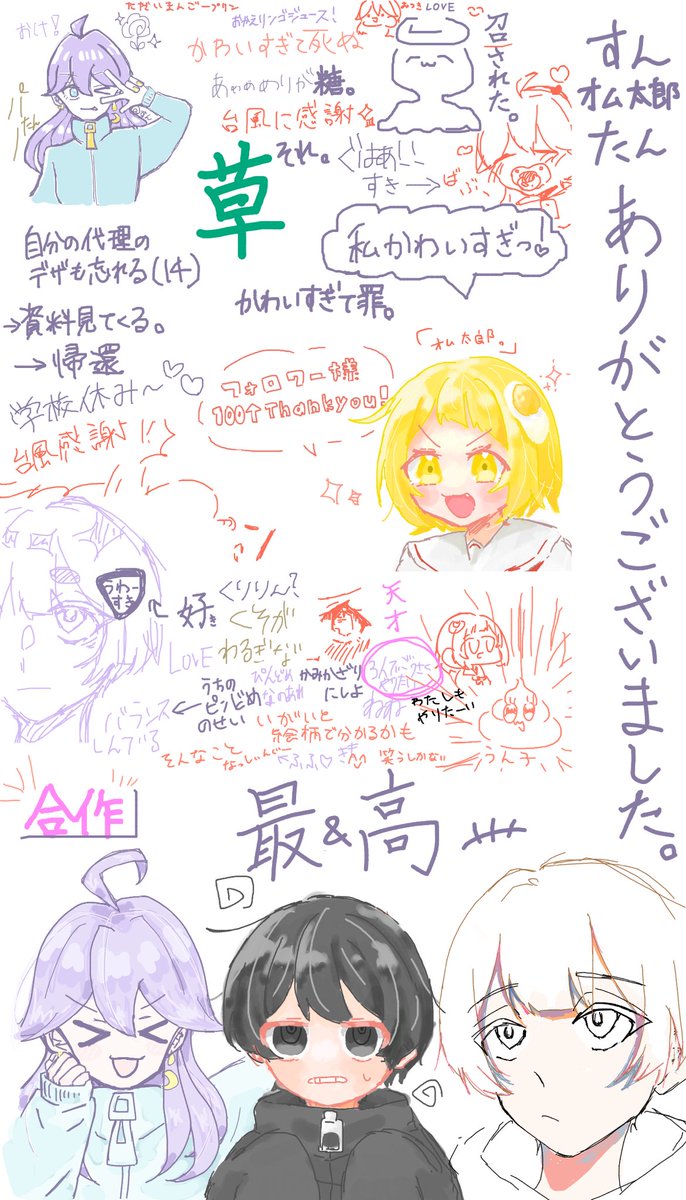 ただいまんごープリン
おかえリンゴジュース!
おけ!
かわいすぎて死ぬ
みつきLOVE
召された。
糖。
台風に感謝
草
それ。
ぐはあ!!
すき→
ばぶ、
私かわいすぎっ!
自分の代理の
デザも忘れる(14)
→資料見てくる。
→帰還
かわいすぎて罪。
学校休み~♡♡
台風感謝!!
「オム太郎。」
フォロワー様
100个Thankyou!
すん
オム太郎
たん
ありがとうございました。
うわー
すき
好き
LOVE
くりりん?
くそが
わるぎなな
天才
かみかざり
にしよ
わたしも
やりたーい
うちの
ピンどめ
のせい
バランス
しんでる
いがいと
絵柄で分かるかも
そんなこと
なっしんぐー
笑うしかない
うん子
合作
最&高